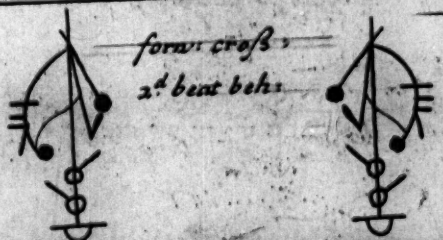 forw: croſs,
2.d beat beh: